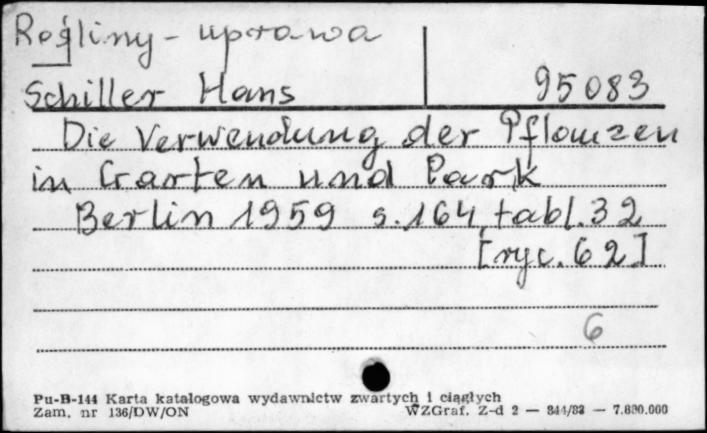 Rośliny - uprawa
Schiller Hans 95083
Die Verwendung der Pflanzen
in Garten und Park
Berlin 1959 s.164, tabl.32
[ryc. 62]
6
Pu-B-144 Karta katalogowa wydawnictw zwartych i ciągłych
Zam. nr 136/DW/ON WZGraf. Z-d 2 — 844/83 — 7.800.000